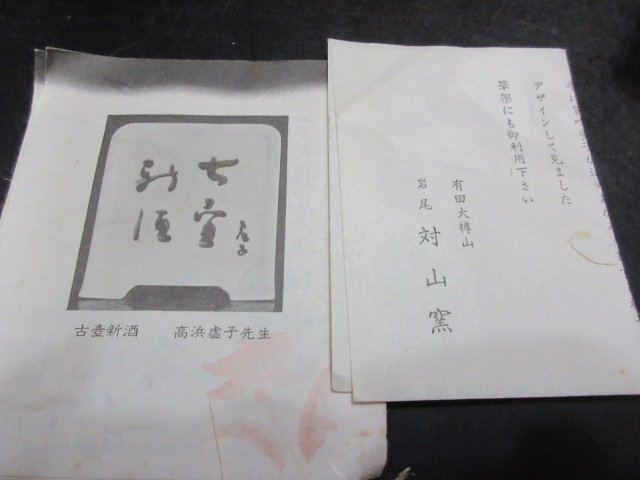 古壺
新酒
虚子
古壺新酒 高浜虚子先生
デザインして見ました
筆架にも御利用下さい
有田大樽山
岩尾 対山窯